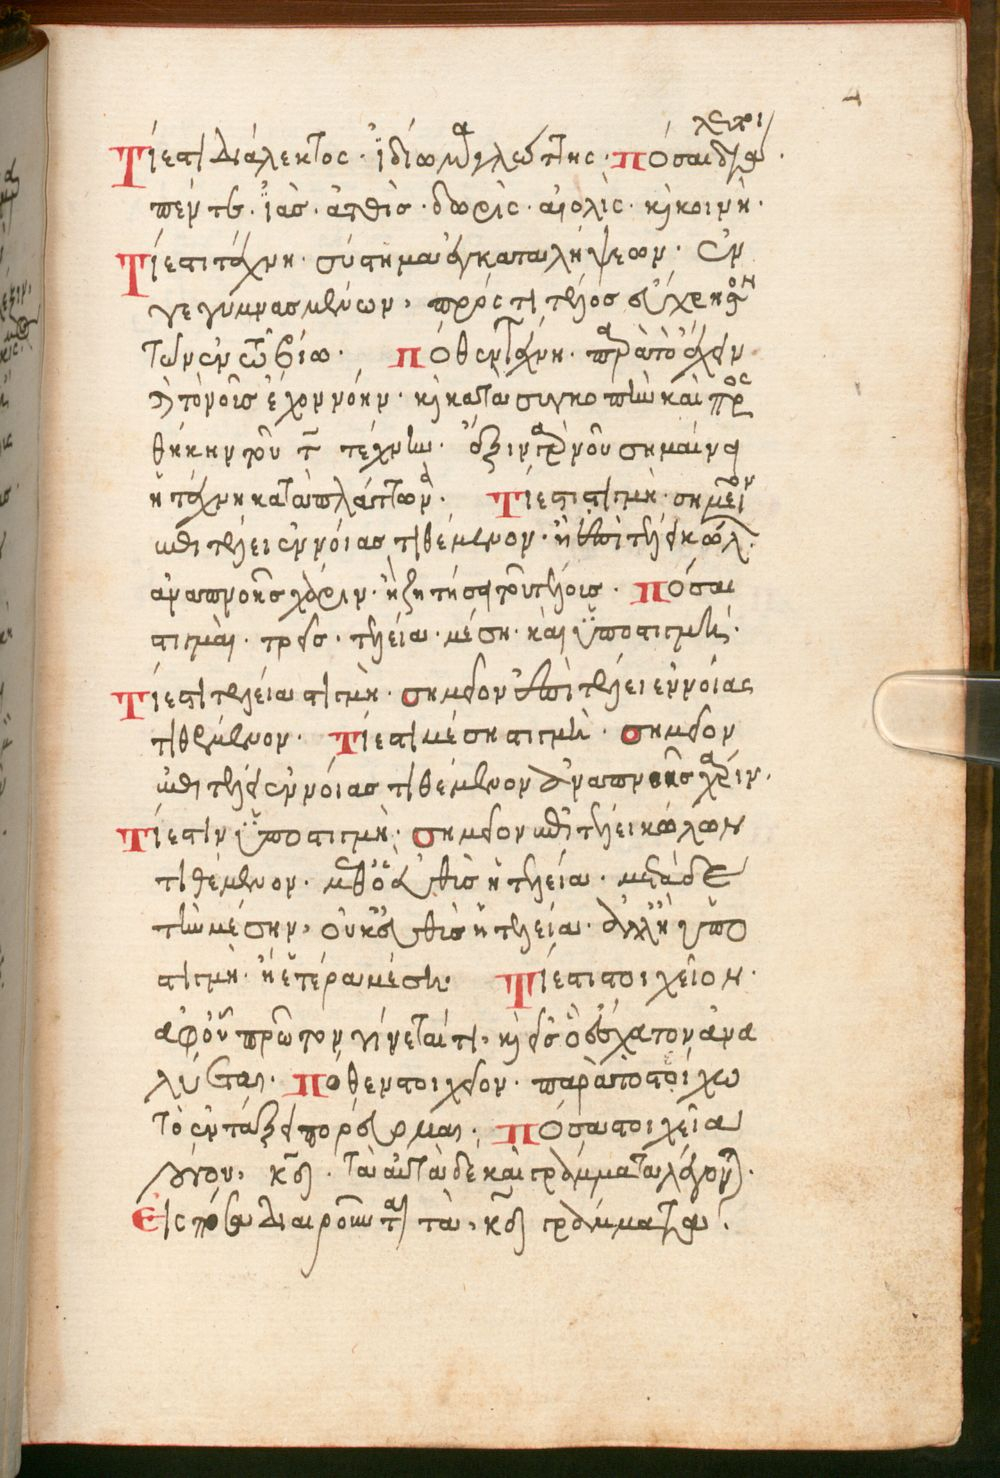 λεκτοι
Τί ἐστι διάλεκτος· ἰδίωμα γλώττης· Πόσαι διά
πέντε· ἰὰς· ἀτθὶς· δωρὶς· αἰολὶς· καὶ κοινή·
Τί ἐστι τέχνη· σύστημα ἐγκαταλήψεων· ἐγ
γεγυμνασμένων, πρός τι τέλος εὔχρηστον
τῶν ἐν τῷ βίῳ· Πόθεν τέχνη· παρὰ τὸ ἔχειν
καὶ τὸ νοεῖν ἐχοννόην· καὶ κατὰ συγκοπὴν καὶ προς
θήκην τοῦ τ τέχνη· ἕξιν γὰρ νοῦ σημαίνει
ἡ τέχνη κατὰ πλάτωνα· Τί ἐστι στιγμή· σημεῖον
ἐπὶ τέλει ἐννοίας τιθέμενον· ἢ ἐπὶ τέλει κώλου
ἀναπνοῆς χάριν· ἢ ζητήσει τοῦ τέλους· Πόσαι
στιγμαί· τρεῖς· τελεία· μέση· καὶ ὑποστιγμή·
Τί ἐστι τελεία στιγμή· σημεῖον ἐπὶ τέλει ἐννοίας
τιθέμενον· Τί ἐστι μέση στιγμή· σημεῖον
ἐπὶ τέλει ἐννοίας τιθέμενον ἀναπνοῆς χάριν·
Τί ἐστιν ὑποστιγμή· σημεῖον ἐπὶ τέλει κώλων
τιθέμενον· μεθ' ὃ τίθεται ἡ τελεία· μετὰ δὲ
τὴν μέσην, οὐκ τίθεται ἡ τελεία· ἀλλ' ἢ ὑπο
στιγμή· ἢ ἑτέρα μέση· Τί ἐστι στοιχεῖον·
ἀφ' οὗ πρῶτον γίνεταί τι, καὶ εἰς ὃ ἔσχατον ἀνα
λύεται· Πόθεν στοιχεῖον· παρὰ τὸ στοίχω
τὸ ἐν τάξει πορεύομαι· Πόσα στοιχεῖα
λόγου, κδ· τὰ αὐτὰ δὲ καὶ γράμματα λέγονται·
Εἰς πόσα διαιροῦνται τὰ κδ γράμματα·